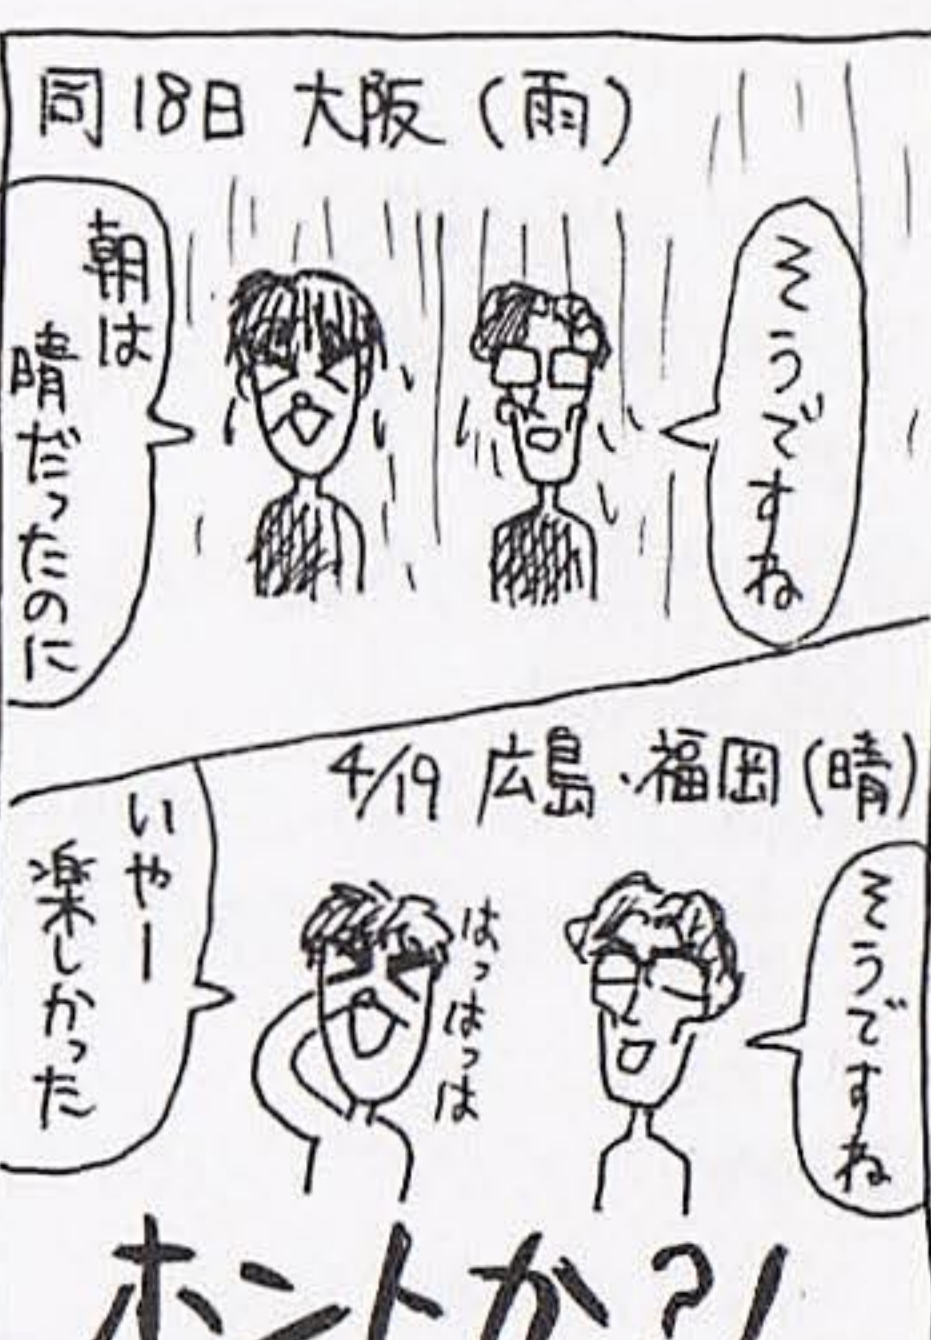 同18日 大阪（雨）
そうですね
朝は
晴だったのに
4/19 広島・福岡（晴）
そうですね
はっはっは
いやー
楽しかった
ホントか?!